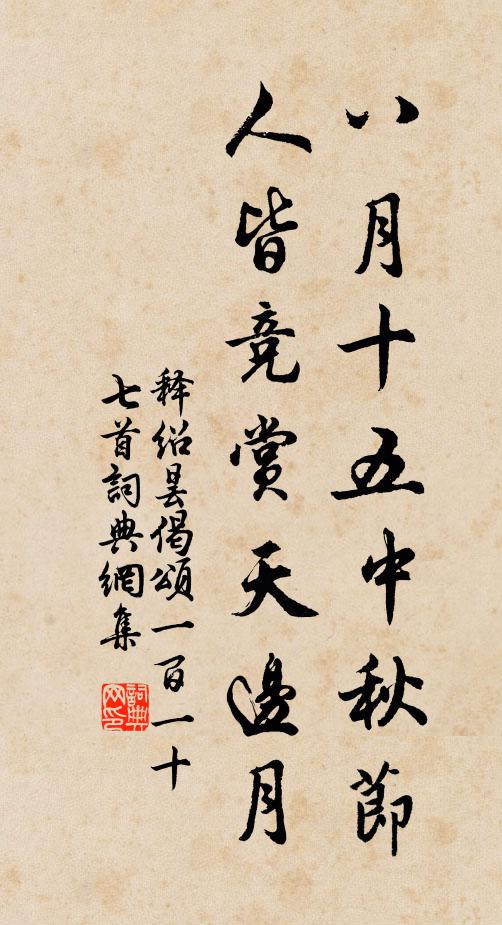 八月十五中秋節
人皆竞賞天邊月
釋紹曇偈頌一百一十
七首詞典網集
詞典
网印